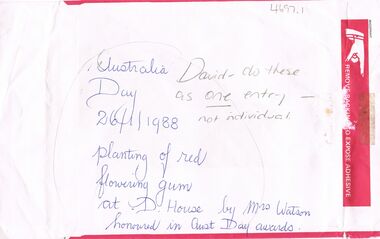 4697.1
Australia
Day
26/1/1988
David - do these
as one entry -
not individual.
planting of red
flowering gum
at D. House by Mrs Watson
honoured in Aust Day awards.
TO EXPOSE ADHESIVE